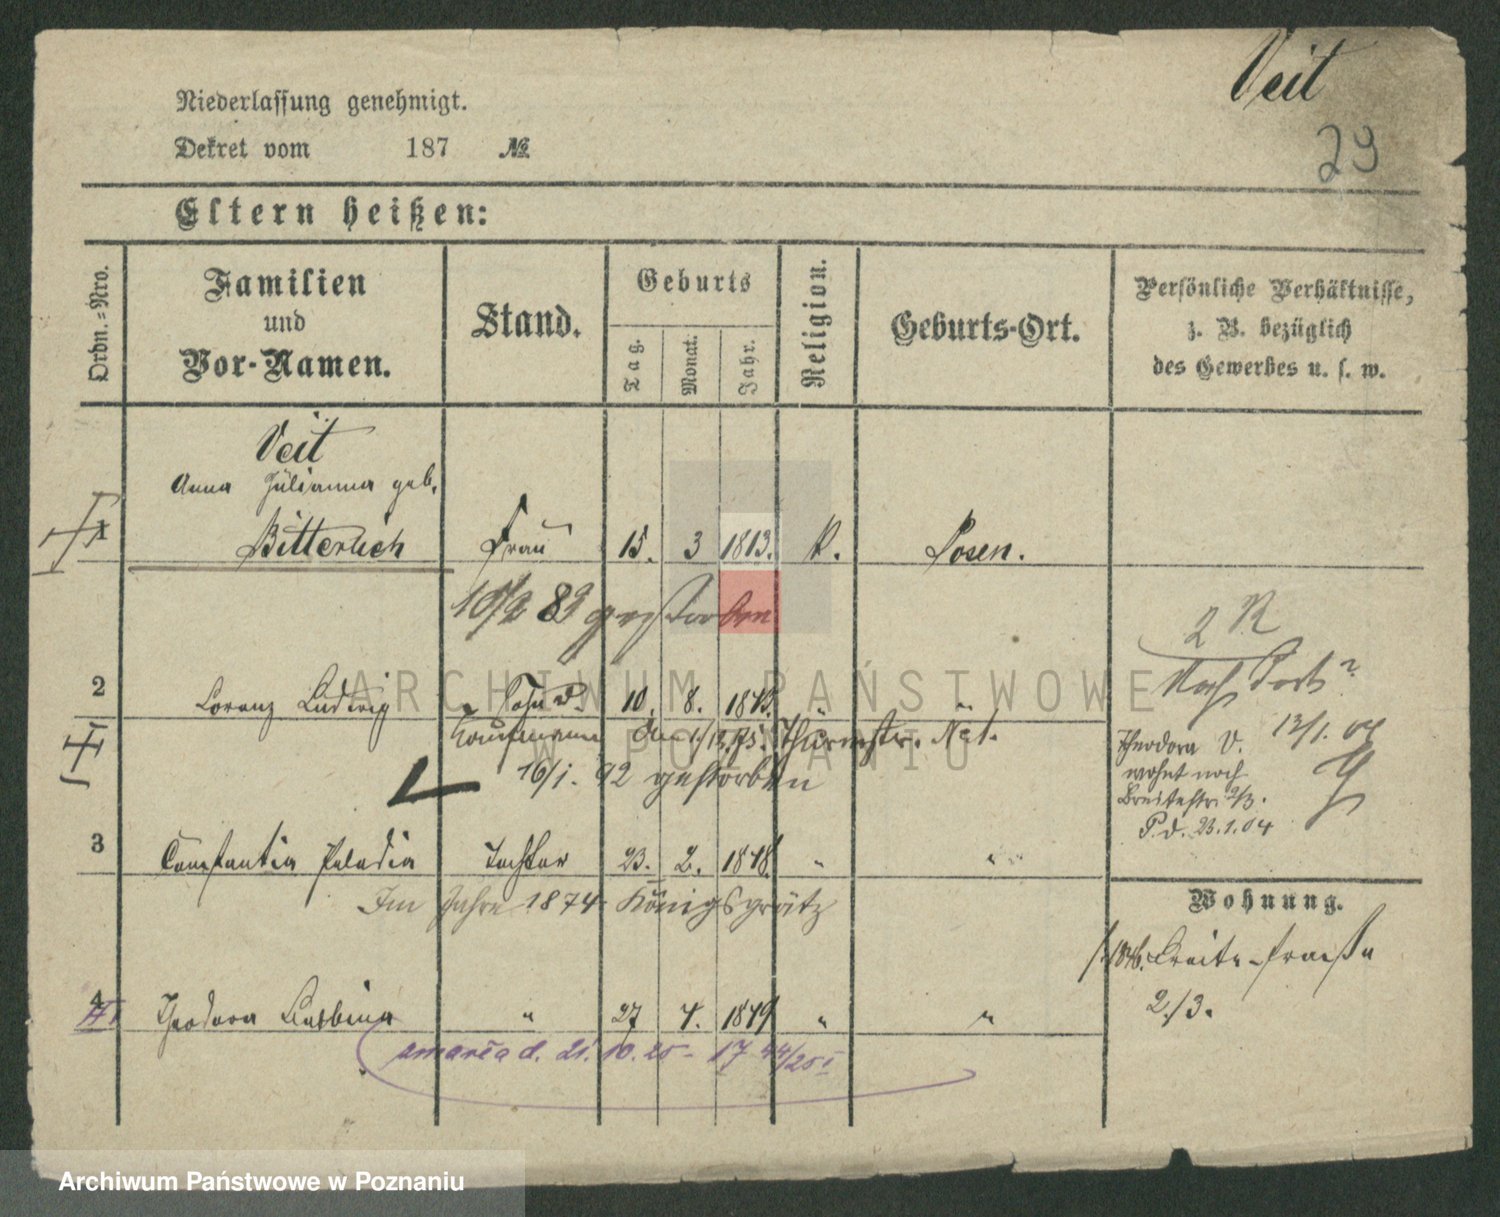 Veit
29
Niederlassung genehmigt.
Dekret vom 187 №
Eltern heißen:
Ordn.=Nro.
Familien
und
Vor-Namen.
Stand.
Geburts
Tag.
Monat.
Jahr.
Religion.
Geburts-Ort.
Persönliche Verhältnisse,
z. B. bezüglich
des Gewerbes u. s. w.
Veit
Anna Julianna geb.
1 Bitterlich Frau 15. 3 1813. K. Posen.
83 gestorben
2 R
2 Lorenz Ludwig Sohn 10. 8. 1843.
Kaufmann
16/1. 92 gestorben
Theodora V. 13/1. 04
wohnt noch
Breitestr. 2/3.
P. d. 23.1.04
3 Constantia Paladia Tochter 23. 2. 1848. "
Im Jahre 1874 Königgrätz
Wohnung.
Breite-straße
2/3.
4 Theodora 27 4. 1849 " "
zmarła d. 21. 10. 25 - 17
ARCHIWUM PAŃSTWOWE
W POZNANIU
Archiwum Państwowe w Poznaniu